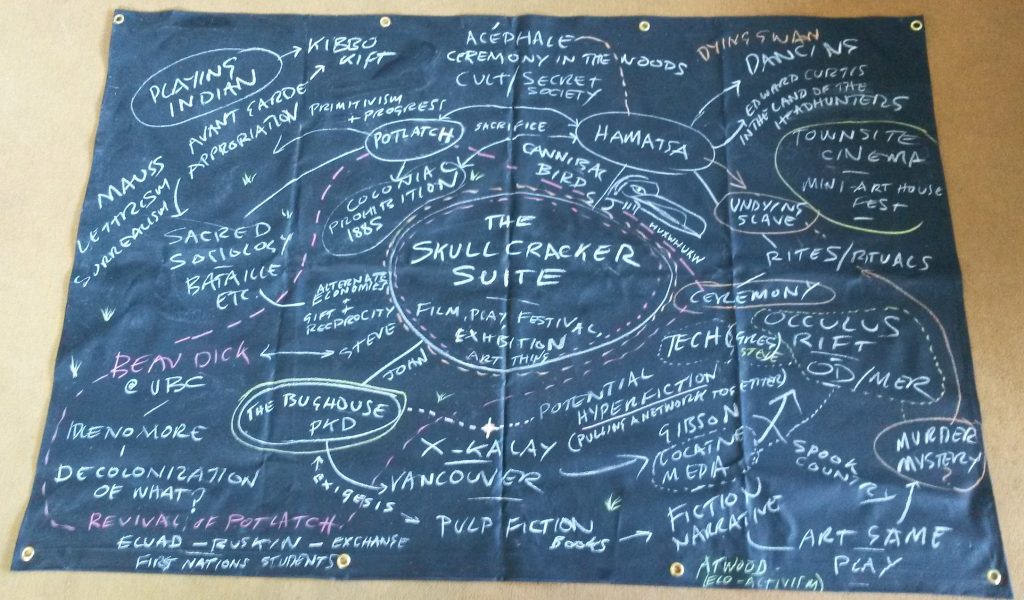 PLAYING
INDIAN
KIBBO
KIFT
AVANT GARDE
APPRORIATION
PRIMITIVISM
+ PROGRESS
POTLATCH
SACRIFICE
COLONIAL
PROHIBITION
1885
ACÉPHALE
CEREMONY IN THE WOODS
CULT/SECRET
SOCIETY
HAMATSA
CANNIBAL
BIRDS
HUXWHUKW
DYING SWAN
DANCING
EDWARD CURTIS
IN THE LAND OF THE
HEADHUNTERS
TOWNSITE
CINEMA
MINI-ART HOUSE
FEST
UNDYING
SLAVE
RITES/RITUALS
CEREMONY
MAUSS
LETTRISM
SURREALISM
SACRED
SOSIOLOGY
BATAILLE
ETC.
ALTERNATE
ECONOMIES
GIFT +
RECIPROCITY
THE
SKULLCRACKER
SUITE
FILM, PLAY, FESTIVAL,
EXHIBITION
ART THING
BEAU DICK
@ UBC
STEVE
JOAN
THE BUGHOUSE
PKD
IDLE NO MORE
DECOLONIZATION
OF WHAT?
REVIVAL OF POTLATCH!
ELUAD - RUSKIN - EXCHANGE
FIRST NATIONS STUDENTS
EXIGESIS
X-KALAY
VANCOUVER
PULP FICTION
BOOKS
POTENTIAL
HYPERFICTION
(PULLING A NETWORK TOGETHER)
TECH
STEVE
OCCULUS
RIFT
OD/MER
GIBSON
LOCATIVE
MEDIA
SPOOK
COUNTRY
MURDER
MYSTERY
?
FICTION
NARRATIVE
ART GAME
PLAY
ATWOOD
(ECO-ACTIVISM)